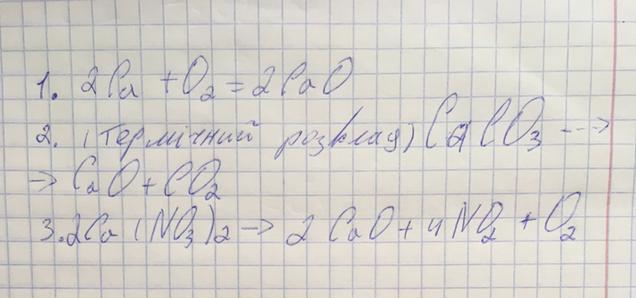 1. 2Ca + O₂ = 2CaO
2. (термічний розклад) CaCO₃ -->
-> CaO + CO₂
3. 2Ca(NO₃)₂ -> 2CaO + 4NO₂ + O₂